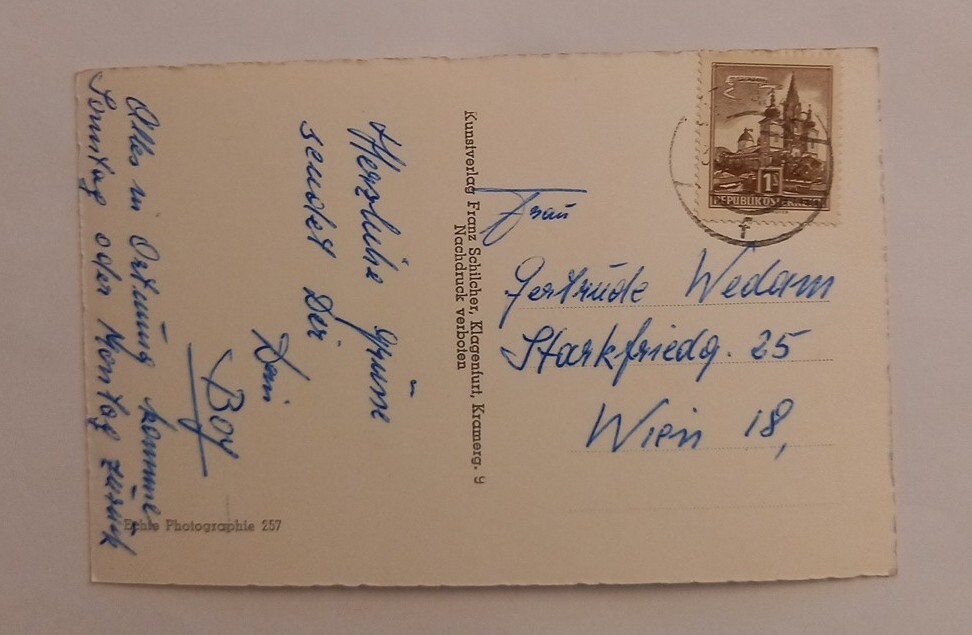 Herzliche Grüsse
sendet Dir
Dein
Boy
Alles in Ordnung komme
Sonntag oder Montag zurück
Echte Photographie 257
Kunstverlag Franz Schilcher, Klagenfurt, Kramerg. 9
Nachdruck verboten
1S
REPUBLIK ÖSTERREICH
Frau
Gertrude Wedam
Starkfriedg. 25
Wien 18,